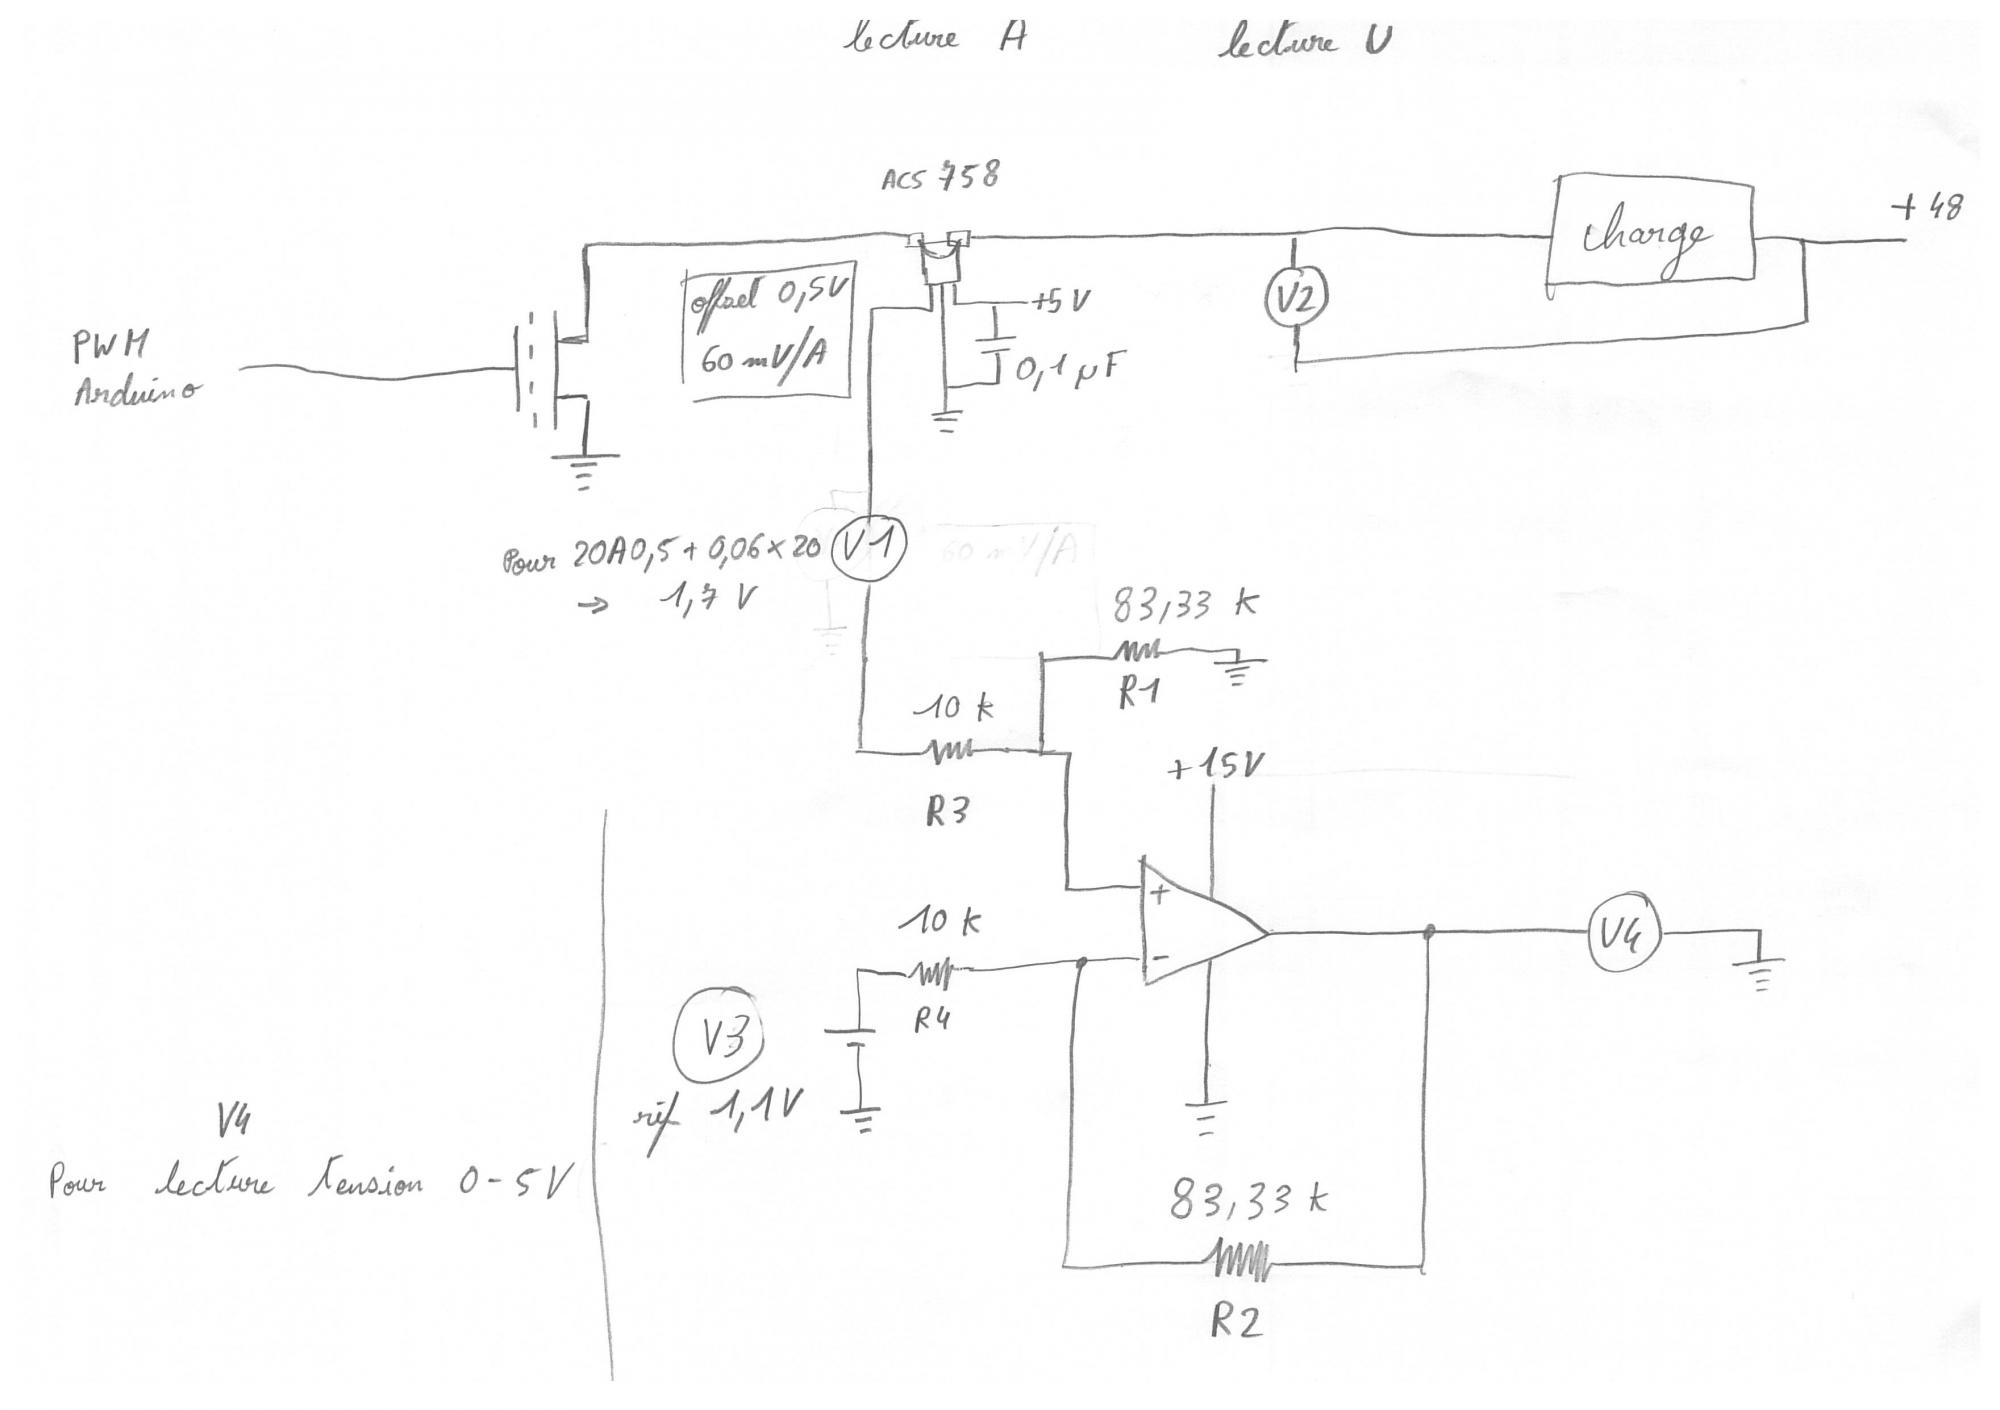 lecture A lecture U
ACS 758
charge
+ 48
offset 0,5V
60 mV/A
+5V
0,1 µF
V2
PWM
Arduino
Pour 20A 0,5 + 0,06 x 20
→ 1,7 V
V1
60 mV/A
83,33 k
R1
10 k
R3
+15V
+
-
10 k
R4
V3
réf 1,1V
V4
83,33 k
R2
V4
Pour lecture tension 0-5V